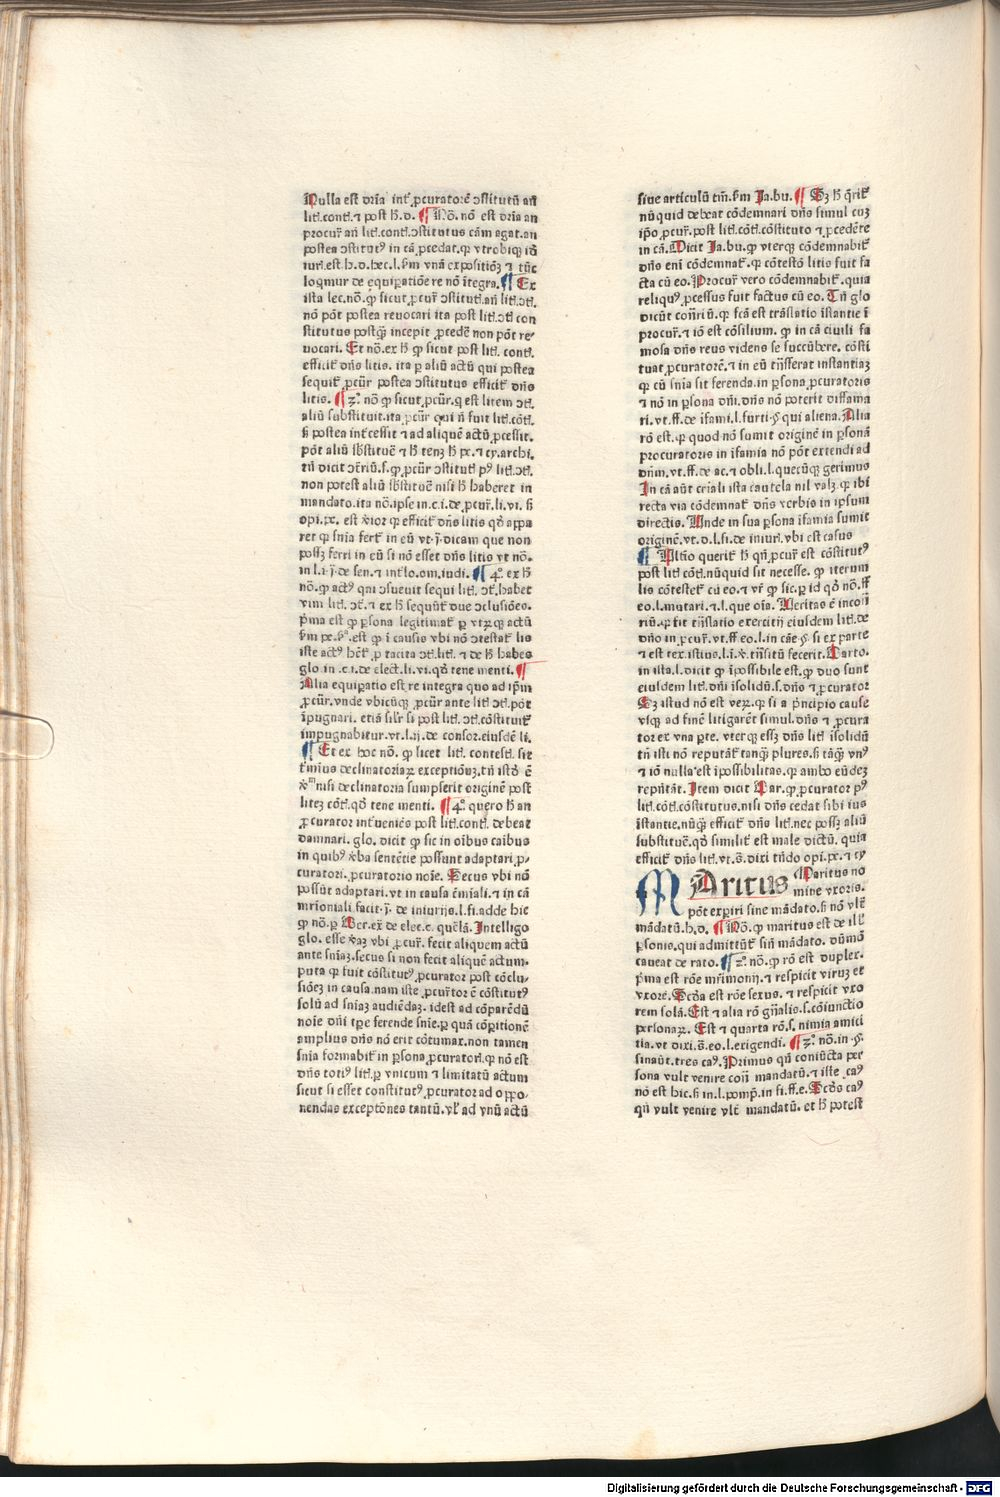 Nulla est dr̄ia int᷑ ꝓcuratorē ↄstitutū añ
litl.contl.⁊ post h̄.d. ¶ Nō. nō est dr̄ia an
procur̄ añ litl.contl.ↄstitutus cām agat.an
postea ↄstitutꝰ in cā ꝓcedat.ꝙ vtrobiqꝫ iō
iuri.est.h.d.hec.l.ẜm vnā expositiōꝫ ⁊ tūc
loqmur de equipatiōe re nō ītegra. ¶ Ex
ista lec.nō.ꝙ sicut ꝓcur̄ ↄstitutl.añ litl.ↄtl.
nō pōt postea reuocari ita post litl.ↄtl con
stitutus postq̄ incepit ꝓcedē non pōt re⸗
uocari. Et nō.ex h̄ ꝙ sicut post litl. contl.
efficit᷑ dn̄s litis. ita ꝑ aliū actū qui postea
sequit᷑ ꝓcūr postea ↄstitutus efficit᷑ dn̄s
litis. ¶ 2ᵒ. nō ꝙ sicut ꝓcūr.q est litem ↄtl.
aliū substituit.ita ꝓcūr qui n̄ fuit litl.cōtl.
ẜi postea int᷑cessit ⁊ ad aliquē actū ꝓcessit.
pōt aliū ẜbstituē ⁊ h̄ tenꝫ h̄ pe.⁊ cy.archi.
tn̄ dicit ↄt̄riū.ſ.ꝙ ꝓcūr ↄstitutl pꝰ litl.ↄtl.
non potest aliū ẜbstituē nisi h̄ haberet in
mandato.ita nō.ipse in.c.i.de ꝓcur̄.li.vi. ẜi
opi.pe. est v̄ior ꝙ efficit᷑ dn̄s litis qd̄ appa
ret ꝙ snīa fert᷑ in eū vt.j̄.dicam que non
possꝫ ferri in eū si nō esset dn̄s litis vt nō.
in l.i j̄.de sen.⁊ int᷑lo.om.iudi. ¶ 4ᵒ. ex h̄
nō.ꝙ actꝰ qui ↄsueuit sequi litl. ↄt᷑.habet
vim litl. ↄt᷑.⁊ ex h̄ sequūt᷑ due ↄclusiōes.
p̄ma est ꝙ ꝑsona legitimat᷑ ꝑ vtrūqꝫ actū
ẜm pe.ẜᵃ.est ꝙ i causis vbi nō ↄtestat᷑ lis
iste actꝰ het᷑ ꝑ tacita ↄtl.litl.⁊ de h̄ habes
glo in.c.i.de elect.li.vi.qd̄ tene menti. ¶
Alia equipatio est re integra quo ad ip̄m
ꝓcūr.vnde vbicūqꝫ ꝓcūr ante litl ↄtl.pōt
īpugnari. etiā silr̄ si post litl. ↄtl.cōstituit᷑
impugnabitur.vt.l.ij.de consor.eiusdē li.
¶ Et ex hoc nō. ꝙ licet litl. contestl. sit
t᷑minus declinatoriaꝝ exceptiōnū.tn̄ istd̄ ē
v̄ᵐ nisi declinatoria sumpserit originē post
litez cōtl.qd̄ tene menti. ¶ 4ᵒ. quero h̄ an
ꝓcurator int᷑ueniēs post litl.contl. debeat
damnari. glo. dicit ꝙ sic in oībus casibus
in quibꝰ v̄ba sentētie possunt adaptari ꝓ⸗
curatori.ꝓcuratorio noīe. Secus vbi nō
possūt adaptari.vt in causa cīniali.⁊ in cā
mrīoniali.facit.j̄. de iniurijs.l.fi.adde hic
ꝙ nō.ꝑ Ver.ex de elec.c. querela. Intelligo
glo. esse v̄az vbi ꝓcur̄. fecit aliquem actū
ante snīaꝫ.secus si non fecit aliquē actum.
puta ꝙ fuit cōstitutꝰ ꝓcurator post cōclu⸗
siōeꝫ in causa.nam iste ꝓcur̄tor ē cōstitutꝰ
solū ad snīaꝫ audiēdaꝫ. idest ad cōparēdū
noīe dn̄i tꝑe ferende snīe.ꝑ quā cōpitionē
amplius dn̄s nō erit cōtumax.non tamen
snīa formabit᷑ in ꝑsona ꝓcuratorl.ꝙ nō est
dn̄s totiꝰ litl.ꝑ vnicum ⁊ limitatū actum
sicut si esset constitutꝰ ꝓcurator ad oppo⸗
nendas exceptōnes tantū.vl᷑ ad vnū actū
siue articulū tm̄.ẜm Ja.bu. ¶ Sꝫ h̄ q̄rit᷑
nūquid debeat cōdemnari dn̄s simul cuꝫ
ip̄o ꝓcur̄.post litl.cōtl.cōstituto ⁊ ꝓcedēre
in cā.Dicit Ja.bu.ꝙ vterqꝫ cōdemnabit᷑
dn̄s enī cōdemnat᷑.ꝙ cōtestō litis fuit fa
cta cū eo.Procur̄ vero cōdemnabit᷑.quia
reliquꝰ ꝓcessus fuit factus cū eo. Tn̄ glo
dicūt con̄riū.ꝙ fcā est trāslatio īstantie ī
procur̄.⁊ iō est cōsilium. ꝙ in cā ciuili fa
mosa dn̄s reus videns se succūbere. cōsti
tuat ꝓcuratorē.⁊ in eū tn̄sferat instantiaꝫ
ꝙ cū snīa sit ferenda.in ꝑsona ꝓcuratoris
⁊ nō in ꝑsona dn̄i.dn̄s nō poterit diffama
ri.vt.ff.de īfami.l.furti.§ qui aliena.Alia
rō est.ꝙ quod nō sumit originē in ꝑsonā
procuratoris in īfamia nō pōt extendi ad
dn̄m.vt.ff.de ac.⁊ obli.l.quecūqꝫ gerimus
In cā aūt cr̄iali ista cautela nil valꝫ.ꝙ ibi
recta via cōdemnat᷑ dn̄s verbis in ipsum
directis. Unde in sua ꝑsona īfamia sumit
originē.vt.d.l.fi.de iniuri.vbi est casus
¶ Ultīo querit᷑ h̄ qn̄ ꝓcur̄ est cōstitutꝰ
post litl cōtl.nūquid sit necesse. ꝙ iterum
lis cōtestet᷑ cū eo.⁊ vr̄ ꝙ sic.ꝑ id qd̄ nō.ff
eo.l.mutari.⁊.l.que oīa. Veritas ē incon̄
riū.ꝙ fit tn̄slatio exercitij eiusdem litl.de
dn̄o in ꝓcur̄.vt.ff eo.l.in cāe § si ex parte
⁊ est tex istius.l.ī.v̄.tn̄situ̅ fecerit. Barto.
in ista.l.dicit ꝙ īpossibile est.ꝙ duo sunt
eiusdem litl.dn̄i īsolidū.ſ.dn̄s ⁊ ꝓcurator
Sꝫ istud nō est veꝝ.ꝙ si a pn̄cipio cause
vsqꝫ ad finē litigarēt simul.dn̄s ⁊ ꝓcura
tor ex vna pte. vterqꝫ essꝫ dn̄s litl īsolidū
tn̄ isti nō reputāt᷑ tanqꝫ plures.ẜi tāqꝫ vnꝰ
⁊ iō nulla est īpossibilitas.ꝙ ambo eūdeꝫ
reputāt. Item dicit Bar.ꝙ ꝓcurator pꝰ
litl.cōtl.cōstitutus.nisi dn̄s cedat sibi ius
īstantie.nūqꝫ efficit᷑ dn̄s litl.nec possꝫ aliū
substituē.qd̄ similit᷑ est male dictū. quia
efficit᷑ dn̄s litl.vt.ō.dixi tn̄do opi.pe.⁊ cy
MAritus Maritus no
mine vxoris.
pōt experiri sine mādato.ẜi nō vlt᷑
mādatū.h.d. ¶ Nō.ꝙ maritus est de ill᷑
ꝑsonis.qui admittūt᷑ sin̄ mādato. dūmō
caueat de rato. ¶ 2ᵒ nō.ꝙ rō est duplex.
p̄ma est rōe mr̄imonij.⁊ respicit viruꝫ et
vxorē.Scd̄a est rōe sexus. ⁊ respicit vxo
rem solā.Est ⁊ alia rō gn̄alis.ſ.cōiunctio
personaꝝ. Est ⁊ quarta rō.ſ. nimia amici
tia.vt dixi.ō.eo.l.exigendi. ¶ 2ᵒ nō.in.§.
sinaūt.tres caꝰ.Primus qn̄ coniūcta per
sona vult venire con̄ mandatū.⁊ iste caꝰ
nō est hic.ẜi in.l.pomp̄.in fi.ff.e.Scd̄s caꝰ
qn̄ vult venire vlt᷑ mandatū.et h̄ potest
Digitalisierung gefördert durch die Deutsche Forschungsgemeinschaft - DFG